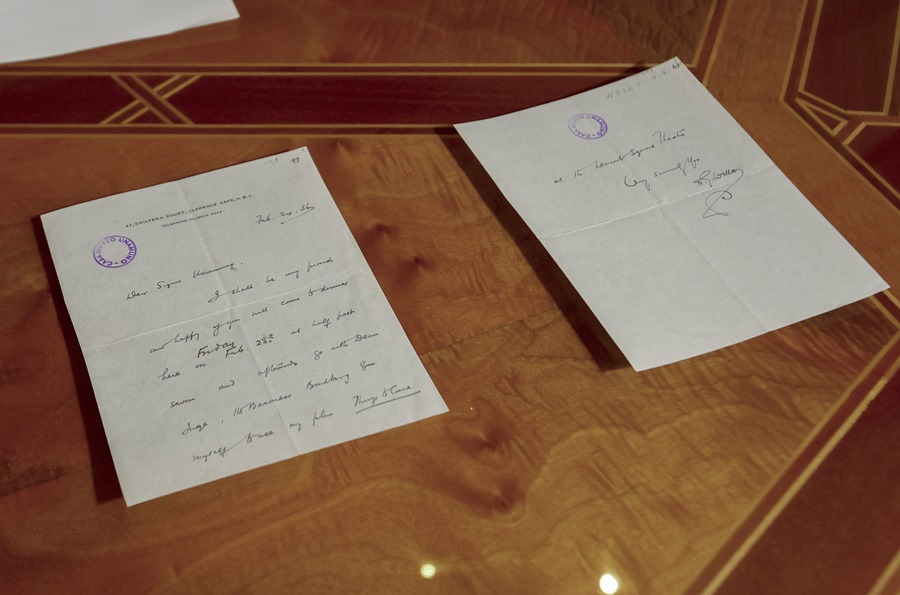 47, CHILTERN COURT, CLARENCE GATE, N.W.1.
Feb. 24. 36
CASA MUSEO UNAMUNO
Dear Signor Unamuno,
I shall be very proud
and happy if you will come to dinner
here on Friday Feb. 28th at half past
seven and afterwards go with Dean
Inge, the Baroness Budberg &
myself to see my film Things to Come
WELLS H.G.
CASA MUSEO UNAMUNO
at the Leicester Square Theatre
Very sincerely yrs
H.G. Wells